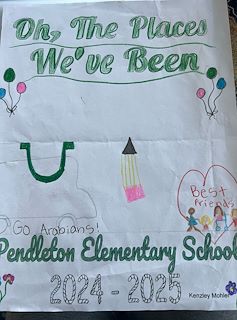 Oh, The Places
We've Been
Go Arabians!
Best
Friends
Pendleton Elementary School
2024 - 2025
Kenzley Mohler